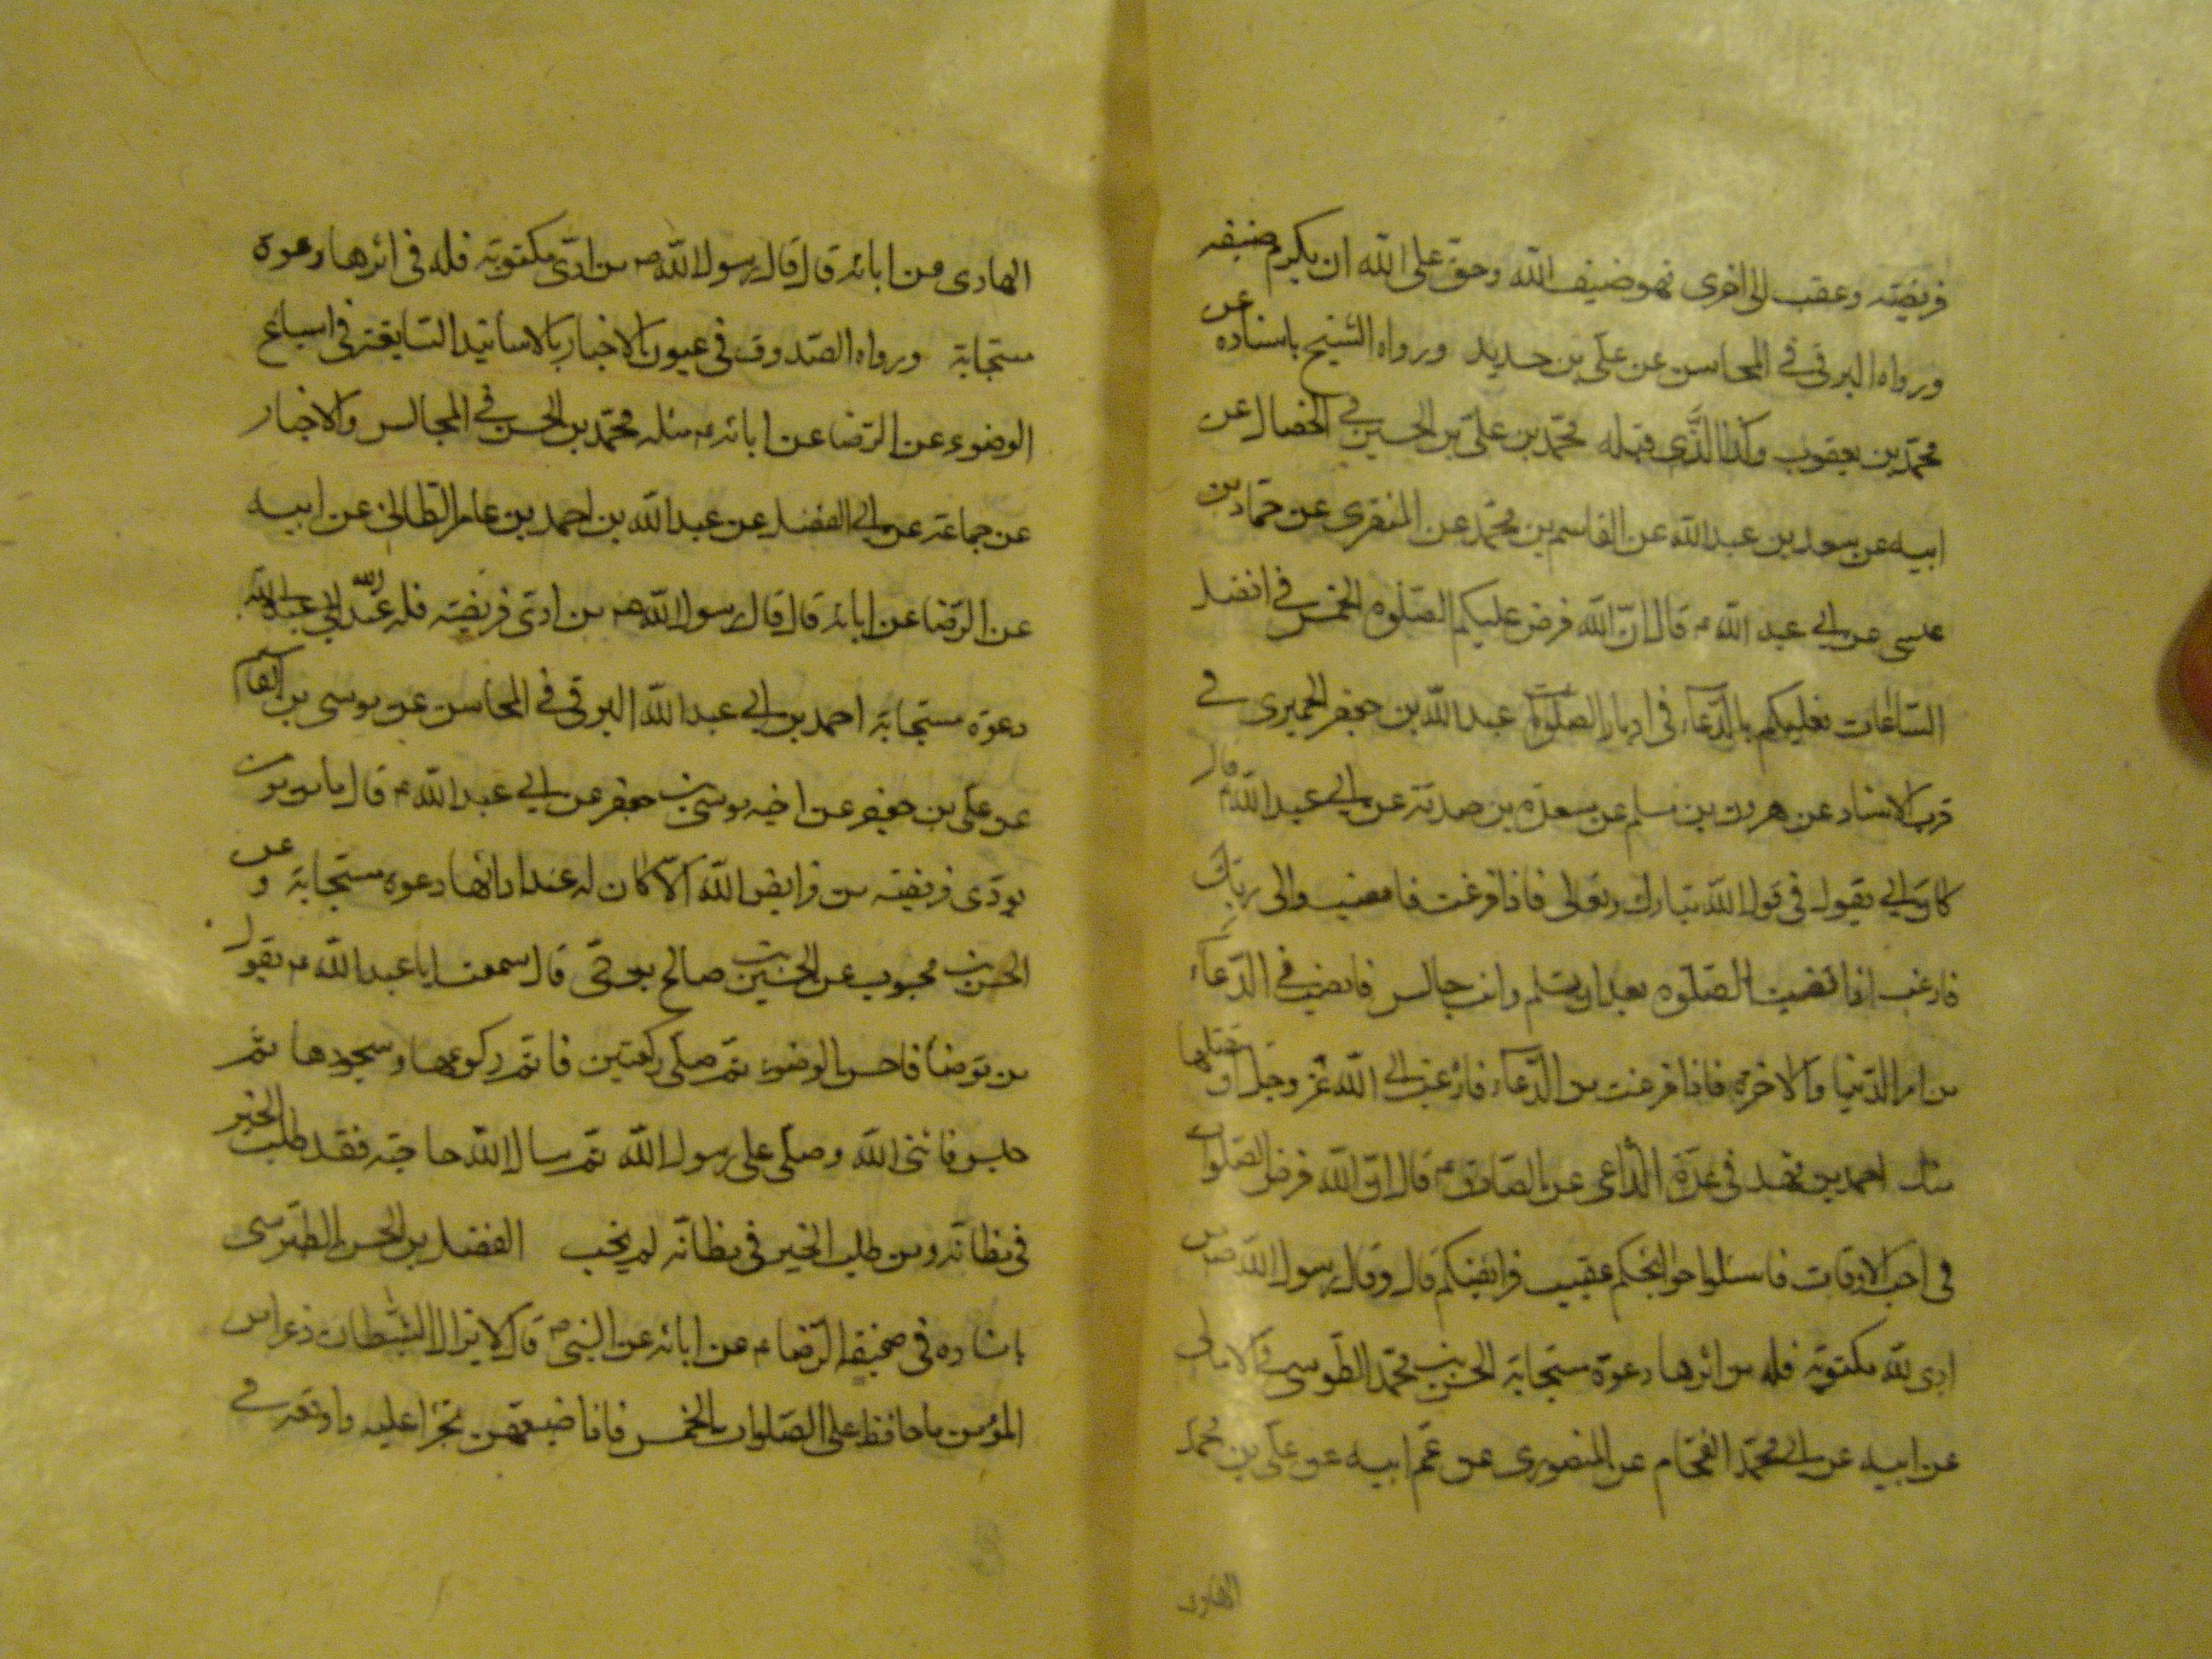 فريضته وعقب الى اخرى فهو ضيف الله وحق على الله ان يكرم ضيفه
ورواه البرقى فى المحاسن عن على بن حديد ورواه الشيخ باسناده عن
محمد بن يعقوب وكذا الذى قبله محمد بن على بن الحسين فى الخصال عن
ابيه عن سعد بن عبد الله عن القاسم بن محمد عن المنقرى عن حماد بن
عيسى عن ابى عبد الله ع قال ان الله فرض عليكم الصلوة الخمس فى افضل
الساعات فعليكم بالدعاء فى ادبار الصلوات عبد الله بن جعفر الحميرى فى
قرب الاسناد عن هرون بن مسلم عن مسعدة بن صدقة عن ابى عبد الله ع قال
كان ابى يقول فى قول الله تبارك وتعالى فاذا فرغت فانصب والى ربك
فارغب اذا قضيت الصلوة بعد ان تسلم وانت جالس فانصب فى الدعاء
من امر الدنيا والاخرة فاذا فرغت من الدعاء فارغب الى الله عز وجل ان يتقبلها
منك احمد بن فهد فى عدة الداعى عن الصادق ع قال ان الله فرض الصلوات
فى احب الاوقات فاسئلوا حوائجكم عقيب فرائضكم قال وقال رسول الله ص من
ادى لله مكتوبة فله من اثرها دعوة مستجابة الحسن بن محمد الطوسى فى الامالى
عن ابيه عن ابى محمد الفحام عن المنصورى عن عم ابيه عن على بن محمد
الهادى
الهادى عن ابائه قال قال رسول الله ص من ادى مكتوبة فله فى اثرها دعوة
مستجابة ورواه الصدوق فى عيون الاخبار بالاسانيد السابقة فى اسباغ
الوضوء عن الرضا عن ابائه ع مثله محمد بن الحسن فى المجالس والاخبار
عن جماعة عن ابى المفضل عن عبد الله بن احمد بن عامر الطائى عن ابيه
عن الرضا عن ابائه قال قال رسول الله ص من ادى فريضة فله عند الله
دعوة مستجابة احمد بن ابى عبد الله البرقى فى المحاسن عن موسى بن القاسم
عن على بن جعفر عن اخيه موسى بن جعفر عن ابى عبد الله ع قال ما من مؤمن
يؤدى فريضة من فرايض الله الا كان له عند ادائها دعوة مستجابة وعن
الحسن بن محبوب عن الحسين بن صالح بن حى قال سمعت ابا عبد الله ع يقول
من توضأ فاحسن الوضوء ثم صلى ركعتين فاتم ركوعها وسجودها ثم
جلس فاثنى الله وصلى على رسول الله ثم سال الله حاجته فقد طلب الخير
فى مظانه ومن طلب الخير فى مظانه لم يخب الفضل بن الحسن الطبرسى
باسناده فى صحيفة الرضا ع عن ابائه عن النبى ص قال لا يزال الشيطان ذعرا من
المؤمن ما حافظ على الصلوات الخمس فاذا ضيعهن تجرأ عليه واوقعه فى